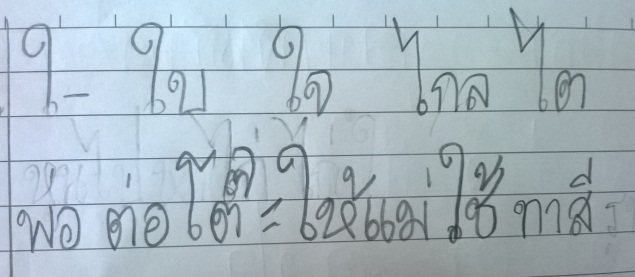 ใ- ใบ ใจ ไกล ไต
พ่อ ต่อ โต๊ะ ให้แม่ ใช้ ทาสี